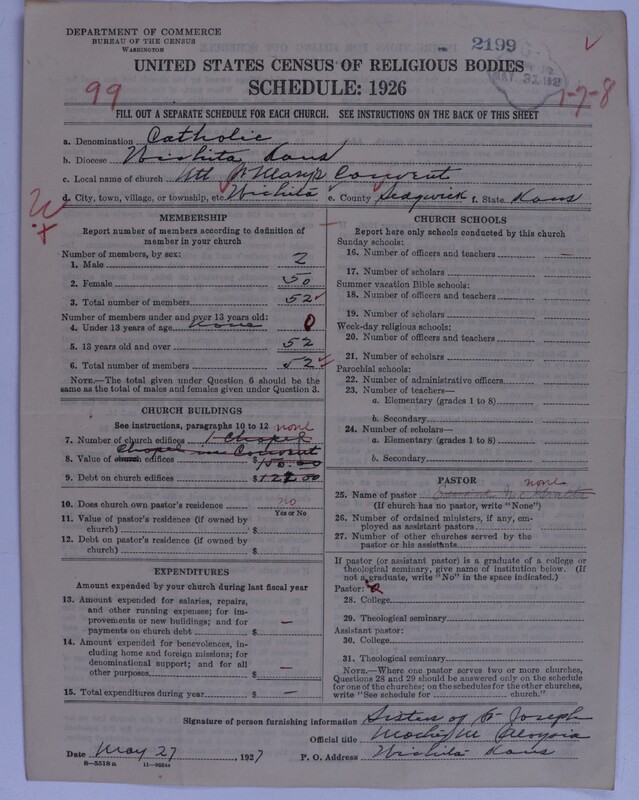 DEPARTMENT OF COMMERCE
BUREAU OF THE CENSUS
WASHINGTON
2199
UNITED STATES CENSUS OF RELIGIOUS BODIES
SCHEDULE: 1926
99
7-7-8
FILL OUT A SEPARATE SCHEDULE FOR EACH CHURCH. SEE INSTRUCTIONS ON THE BACK OF THIS SHEET
a. Denomination Catholic
b. Diocese Wichita, Kans
c. Local name of church Mt St Mary's Convent
d. City, town, village, or township, etc. Wichita e. County Sedgwick f. State Kans
MEMBERSHIP
Report number of members according to definition of member in your church
Number of members, by sex:
1. Male 2
2. Female 50
3. Total number of members 52
Number of members under and over 13 years old:
4. Under 13 years of age None 0
5. 13 years old and over 52
6. Total number of members 52
NOTE.—The total given under Question 6 should be the same as the total of males and females given under Question 3.
CHURCH BUILDINGS
See instructions, paragraphs 10 to 12 none
7. Number of church edifices 1 Chapel
Chapel in Convent
8. Value of church edifices $150.00
9. Debt on church edifices $
10. Does church own pastor's residence no
Yes or No
11. Value of pastor's residence (if owned by church) $
12. Debt on pastor's residence (if owned by church) $
EXPENDITURES
Amount expended by your church during last fiscal year
13. Amount expended for salaries, repairs, and other running expenses; for improvements or new buildings; and for payments on church debt $ —
14. Amount expended for benevolences, including home and foreign missions; for denominational support; and for all other purposes $ —
15. Total expenditures during year $ —
CHURCH SCHOOLS
Report here only schools conducted by this church
Sunday schools:
16. Number of officers and teachers —
17. Number of scholars
Summer vacation Bible schools:
18. Number of officers and teachers
19. Number of scholars
Week-day religious schools:
20. Number of officers and teachers
21. Number of scholars
Parochial schools:
22. Number of administrative officers
23. Number of teachers—
a. Elementary (grades 1 to 8)
b. Secondary
24. Number of scholars—
a. Elementary (grades 1 to 8)
b. Secondary
PASTOR
none
25. Name of pastor
(If church has no pastor, write "None")
26. Number of ordained ministers, if any, employed as assistant pastors
27. Number of other churches served by the pastor or his assistants
If pastor (or assistant pastor) is a graduate of a college or theological seminary, give name of institution below. (If not a graduate, write "No" in the space indicated.)
Pastor:
28. College
29. Theological seminary
Assistant pastor:
30. College
31. Theological seminary
NOTE.—Where one pastor serves two or more churches, Questions 28 and 29 should be answered only on the schedule for one of the churches; on the schedules for the other churches, write "See schedule for church."
Signature of person furnishing information Sisters of St Joseph
Official title Mother M Aloysia
Date May 27, 1927 P. O. Address Wichita Kans
8—5518a